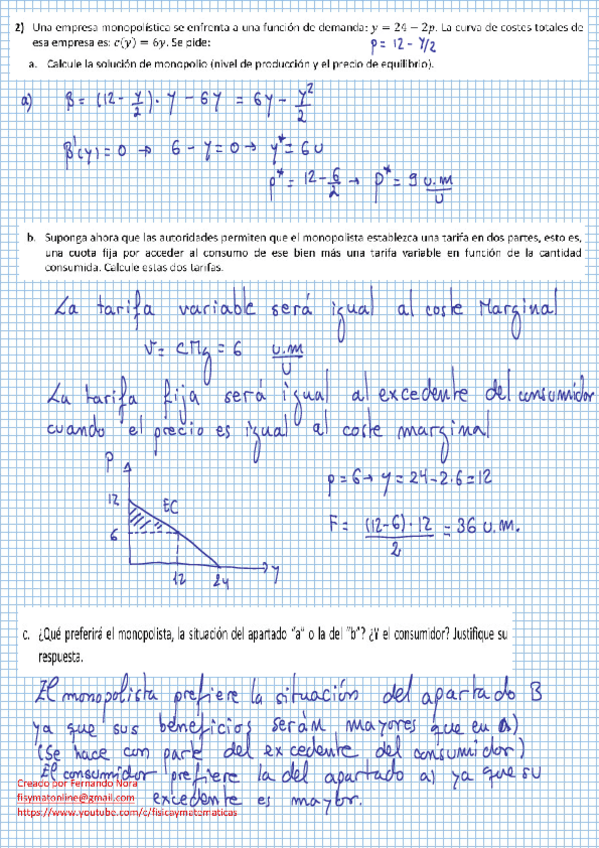 2) Una empresa monopolística se enfrenta a una función de demanda: y = 24 − 2p. La curva de costes totales de
esa empresa es: c(y) = 6y. Se pide:
p = 12 - y/2
a. Calcule la solución de monopolio (nivel de producción y el precio de equilibrio).
a) B = (12 - y/2) · y - 6y = 6y - y²/2
B'(y) = 0 → 6 - y = 0 → y* = 6 u
p* = 12 - 6/2 → p* = 9 u.m/u
b. Suponga ahora que las autoridades permiten que el monopolista establezca una tarifa en dos partes, esto es,
una cuota fija por acceder al consumo de ese bien más una tarifa variable en función de la cantidad
consumida. Calcule estas dos tarifas.
La tarifa variable será igual al coste Marginal
V = CMg = 6 u.m/u
La tarifa fija será igual al excedente del consumidor
cuando el precio es igual al coste marginal
P
12
EC
6
12
24
y
p = 6 → y = 24 - 2·6 = 12
F = (12-6)·12/2 = 36 u.m.
c. ¿Qué preferirá el monopolista, la situación del apartado "a" o la del "b"? ¿Y el consumidor? Justifique su
respuesta.
El monopolista prefiere la situación del apartado B
ya que sus beneficios serán mayores que en a)
(Se hace con parte del excedente del consumidor)
El consumidor prefiere la del apartado a) ya que su
excedente es mayor.
Creado por Fernando Nora
fisymatonline@gmail.com
https://www.youtube.com/c/fisicaymatematicas